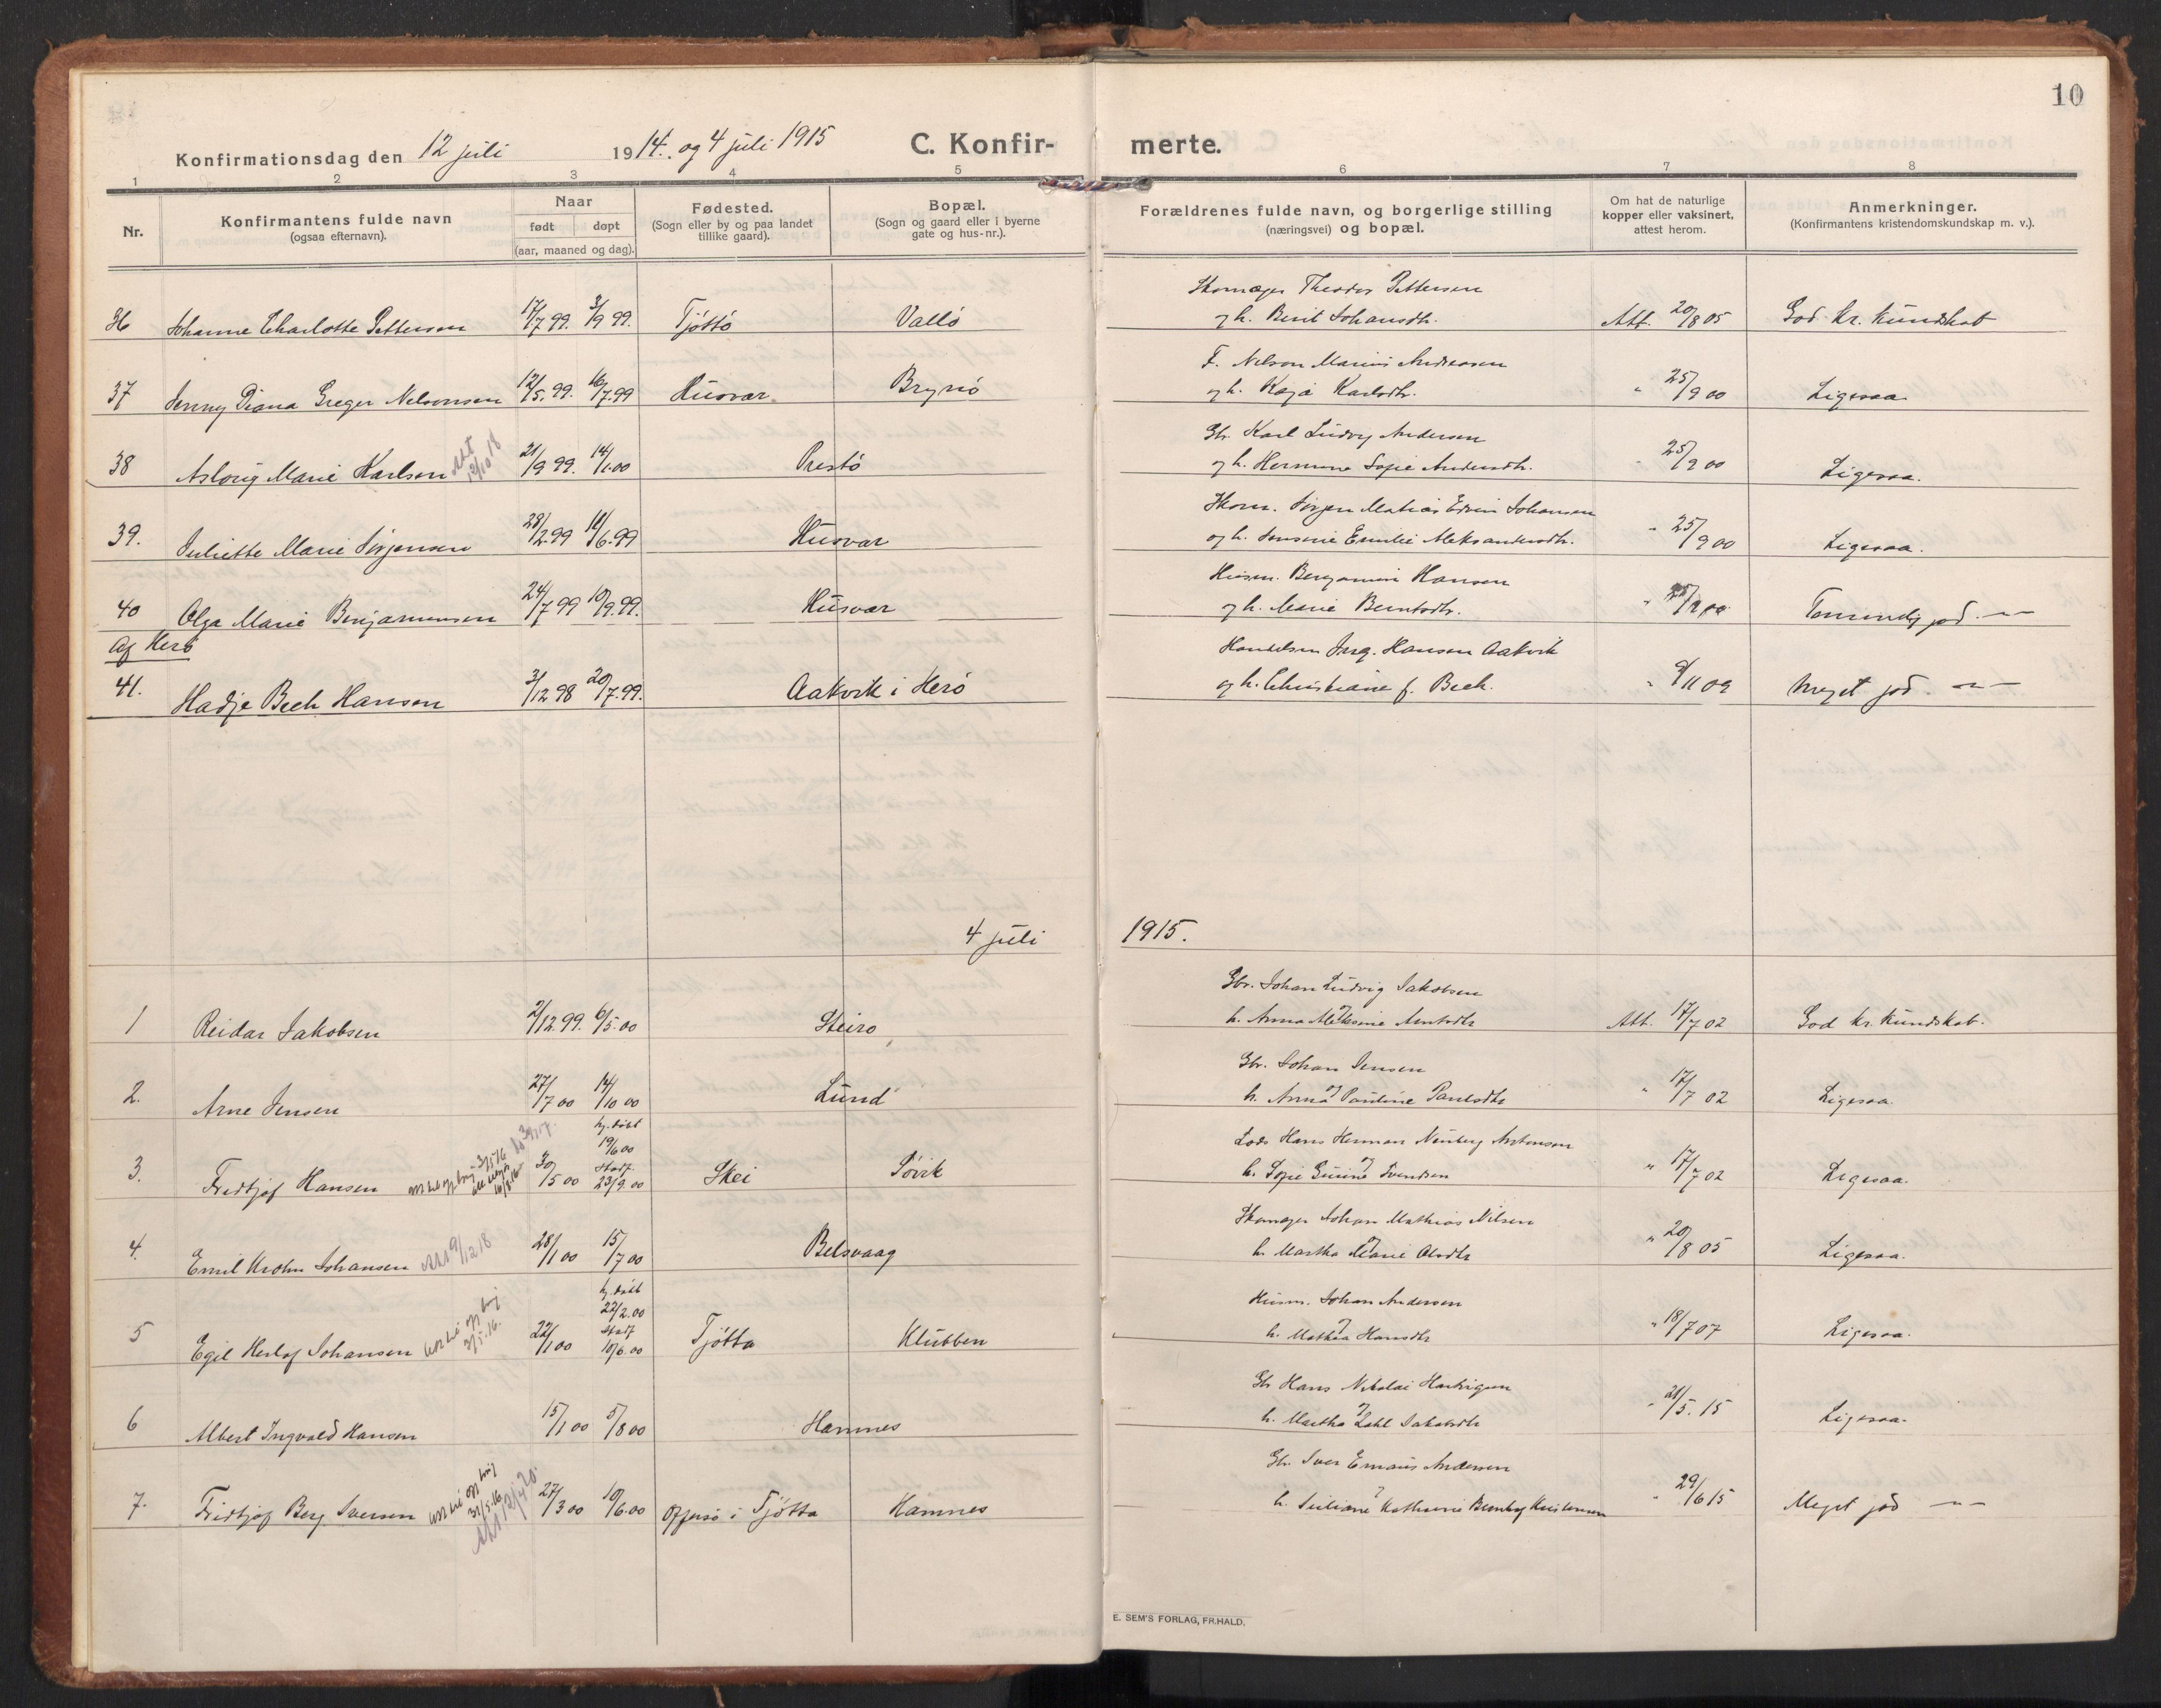 10
Konfirmationsdag den 12 juli 1914. og 4 juli 1915 C. Konfir- merte.
1 2 3 4 5 6 7 8
Nr.
Konfirmantens fulde navn
(ogsaa efternavn).
Naar
født døpt
(aar, maaned og dag).
Fødested.
(Sogn eller by og paa landet
tillike gaard).
Bopæl.
(Sogn og gaard eller i byerne
gate og hus-nr.).
Forældrenes fulde navn, og borgerlige stilling
(næringsvei) og bopæl.
Om hat de naturlige
kopper eller vaksinert,
attest herom.
Anmerkninger.
(Konfirmantens kristendomskundskap m. v.).
Skomager Theodor Pettersen
36 Johanne Charlotte Pettersen 17/7 99. 3/9 99. Tjöttö Vallö og h. Berit Johansdtr. Att. 20/8 05 God kr. kundskab
F. Nelson Marius Andreasen
37 Jenny Diana Greger Nelsonsen 12/5. 99. 16/7.99 Husvær Brynö og h. Kaja Karlsdtr. " 25/9 00 Ligesaa
Gbr. Karl Ludvig Andersen
38 Aslaug Marie Karlsen Att 12/10 18 21/9 99. 14/1.00 Prestö og h. Hermine Sofie Andersdtr. " 25/9 00 Ligesaa.
Skom. Jörgen Mathias Edvin Johansen
39. Juliette Marie Jörgensen 28/2.99 11/6.99 Husvær og h. Jensine Emilie Aleksandersdtr. " 25/9 00 Ligesaa.
Husm. Benjamin Hansen
40 Olga Marie Benjaminsen 24/7 99 10/9.99. Husvær og h. Marie Berntsdtr. " 25/9 00 Temmelig god. — " —
Af Herö
Handelsm Ing. Hansen Aakvik
41. Hadje Bech Hansen 3/12 98 20/7.99. Aakvik i Herö og h. Christiane f. Bech. " 9/11 09 Meget god. — " —
4 juli 1915.
Gbr. Johan Ludvig Jakobsen
1 Reidar Jakobsen 2/12.99. 6/5.00 Steiro og h. Anna Aleksine Arntsdtr Att. 17/7 02 God kr. kundskab.
Gbr. Johan Jensen
2. Arne Jensen 27/7 00 14/10 00 Lund og h. Anna Pauline Paulsdtr " 17/7 02 Ligesaa
hj. döbt
19/6 00
Stadf.
23/9.00
Lods Hans Herman Nünberg Antonsen
3. Fridtjof Hansen 30/5 00 Skei Sövik og h. Sofie Gurine Svendsen " 17/7 02 Ligesaa.
Skomager Johan Mathias Nilsen
4. Emil Krohn Johansen Att 9/12 18 28/1 00 15/7 00 Belsvaag og h. Martha Marie Olsdtr " 20/8 05 Ligesaa.
hj. döbt
22/2.00
Stadf
10/6.00
Husm. Johan Andersen
5 Egil Herlof Johansen 22/1 00 Tjötta Klubben og h. Mathea Hansdtr " 18/7 07 Ligesaa.
Gbr Hans Nikolai Hartvigsen
6 Albert Ingvald Hansen 15/1 00 5/8 00 Hamnes og h. Martha Dahl Jakobsdtr " 21/5. 15 Ligesaa.
Gbr. Iver Emaus Andersen
7. Fridtjof Berg Iversen 31/5.16. 27/3 00 10/6.00 Offersö i Tjötta Hamnes og h. Juliane Kathrine Bernhof Kristensen " 29/6 15 Meget god — " —
E. SEM'S FORLAG, FR.HALD.